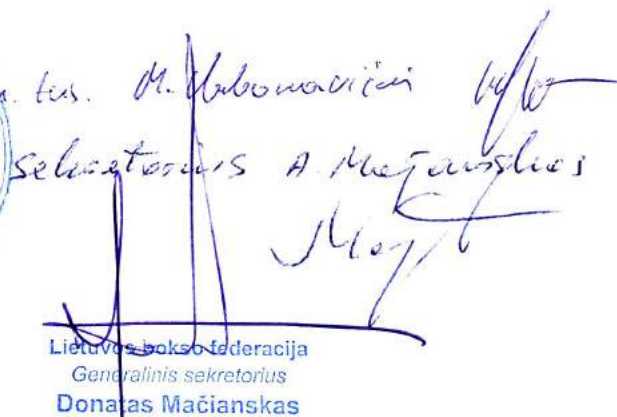 tus. M. Urbonavičius
sekretorius A.
Lietuvos bokso federacija
Generalinis sekretorius
Donatas Mačianskas